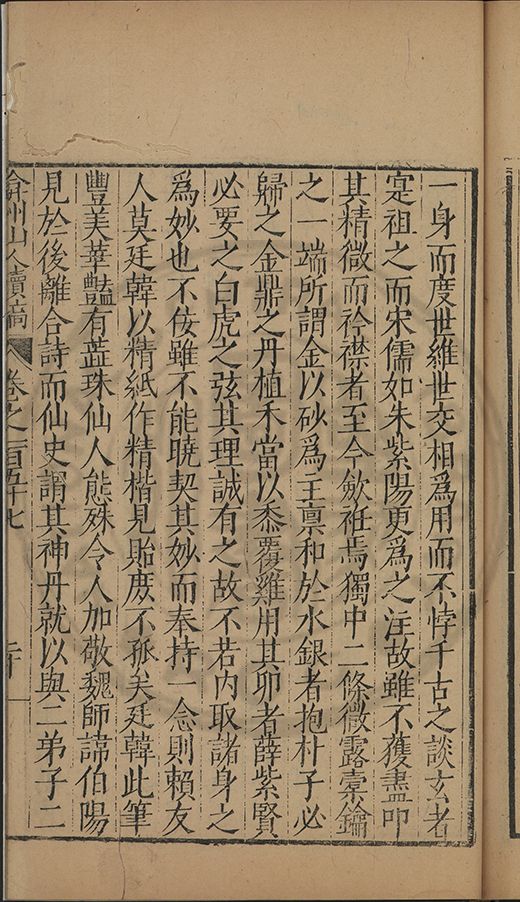 一身而度世維世交相爲用而不悖千古之談玄者
寔祖之而宋儒如朱紫陽更爲之注故雖不獲盡叩
其精微而衿襟者至今歛袵焉獨中二條微露橐鑰
之一端所謂金以砂爲主稟和於水銀者抱朴子必
歸之金鼎之丹植禾當以黍覆雞用其卵者薛紫賢
必要之白虎之弦其理誠有之故不若内取諸身之
爲妙也不佞雖不能曉契其妙而奉持一念則賴友
人莫廷韓以精紙作精楷見貽庶不孤矣廷韓此筆
豐美華豔有蓝珠仙人態殊令人加敬魏師諱伯陽
見於後離合詩而仙史謂其神丹就以與二弟子二
弇州山人續稿 卷之一百五十七